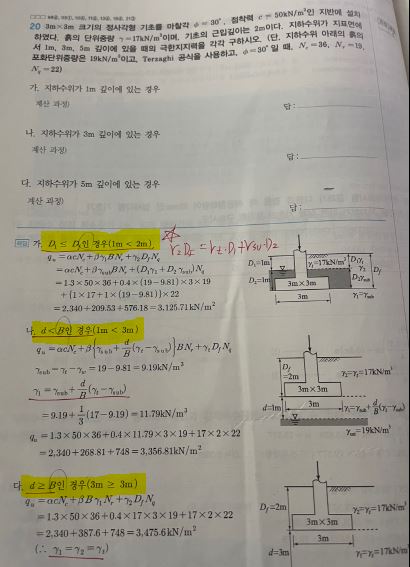 20 3m×3m 크기의 정사각형 기초를 마찰각 φ=30°, 점착력 c=50kN/m²인 지반에 설치
하였다. 흙의 단위중량 γ=17kN/m³이며, 기초의 근입깊이는 2m이다. 지하수위가 지표면에
서 1m, 3m, 5m 깊이에 있을 때의 극한지지력을 각각 구하시오. (단, 지하수위 아래의 흙의
포화단위중량은 19kN/m³이고, Terzaghi 공식을 사용하고, φ=30°일 때, Nc=36, Nγ=19,
Nq=22)
가. 지하수위가 1m 깊이에 있는 경우
계산 과정)
답 :
나. 지하수위가 3m 깊이에 있는 경우
계산 과정)
답 :
다. 지하수위가 5m 깊이에 있는 경우
계산 과정)
답 :
해답 가. D₁ ≤ Df인 경우(1m < 2m)
γ₂Df = γt·D₁+γsub·D₂
qu = αcNc+βγ₁BNγ+γ₂DfNq
=αcNc+βγsubBNγ+(D₁γ₁+D₂γsub)Nq
=1.3×50×36+0.4×(19−9.81)×3×19
+{1×17+1×(19−9.81)}×22
=2,340+209.53+576.18=3,125.71kN/m²
D₁=1m
D₂=1m
γt=17kN/m³
D₁γt
D₂γsub
Df
3m×3m
3m
γ₁=γsub
나. d<B인 경우(1m < 3m)
qu = αcNc+β{γsub+d/B(γt−γsub)}BNγ+γ₂DfNq
γsub=γt−γw=19−9.81=9.19kN/m³
γ₁=γsub+d/B(γt−γsub)
=9.19+1/3(17−9.19)=11.79kN/m³
qu=1.3×50×36+0.4×11.79×3×19+17×2×22
=2,340+268.81+748=3,356.81kN/m²
Df=2m
γ₂=γt=17kN/m³
3m×3m
d=1m
3m
γ₁=γsub+d/B(γt−γsub)
γsat=19kN/m³
다. d ≥ B인 경우(3m ≥ 3m)
qu=αcNc+βBγ₁Nγ+γ₂DfNq
=1.3×50×36+0.4×17×3×19+17×2×22
=2,340+387.6+748=3,475.6kN/m²
(∴ γ₁=γ₂=γt)
Df=2m
γ₂=γt=17kN/m³
3m×3m
3m
d=3m
γ₁=γt=17kN/m³